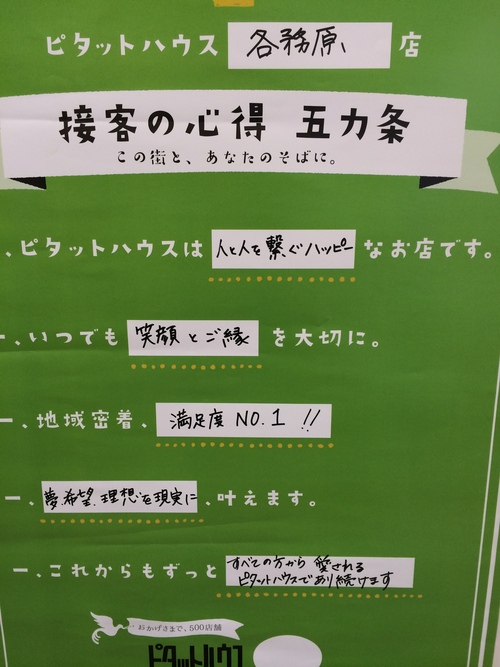 ピタットハウス 各務原、店
接客の心得 五カ条
この街と、あなたのそばに。
、ピタットハウスは 人と人を繋ぐハッピー なお店です。
一、いつでも 笑顔とご縁 を大切に。
一、地域密着、満足度 NO.1 !!
一、夢、希望、理想を現実に、叶えます。
一、これからもずっと すべての方から 愛される
ピタットハウスであり続けます
おかげさまで、500店舗
ピタットハウス